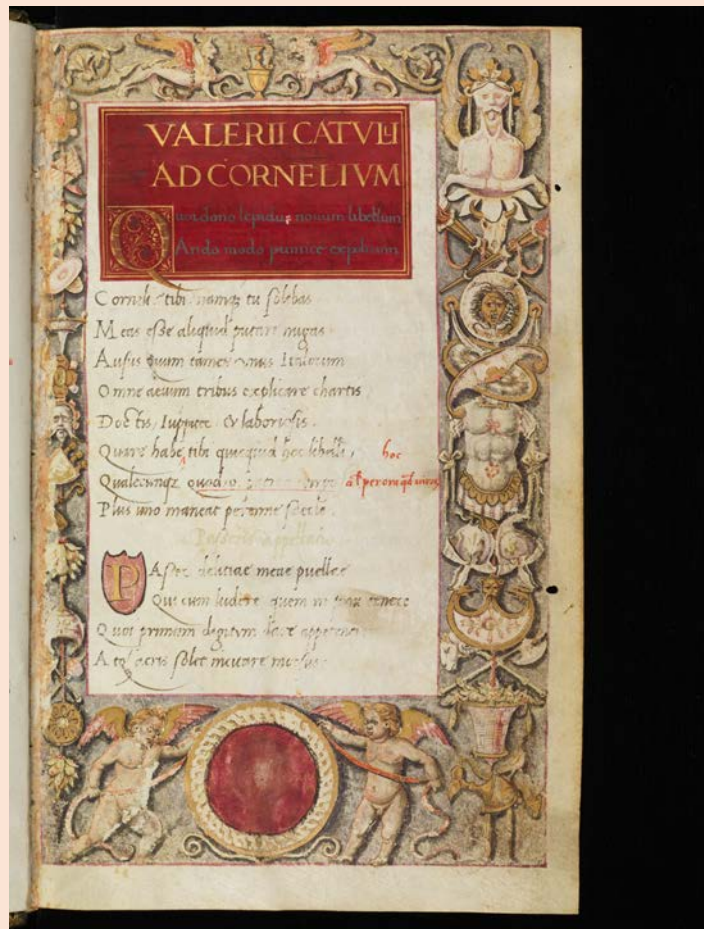 VALERII CATVLI
AD CORNELIVM
Quoi dono lepidum nouum libellum
Arido modo pumice expolitum
Corneli tibi namq; tu solebas
Meas esse aliquid putare nugas
Ausus quum tames unus Italorum
Omne aeuum tribus explicare chartis
Doctis Iuppiter & laboriosis.
Quare habe tibi quicquid hoc libelli,
hoc
Qualecunq; quod o
Plus uno maneat perenne saeclo.
Passeris
Passer delitiae meae puellae
Qui cum ludere quem in sinu tenere
Quoi primum digitum dare appetenti
Et acris solet incitare morsus